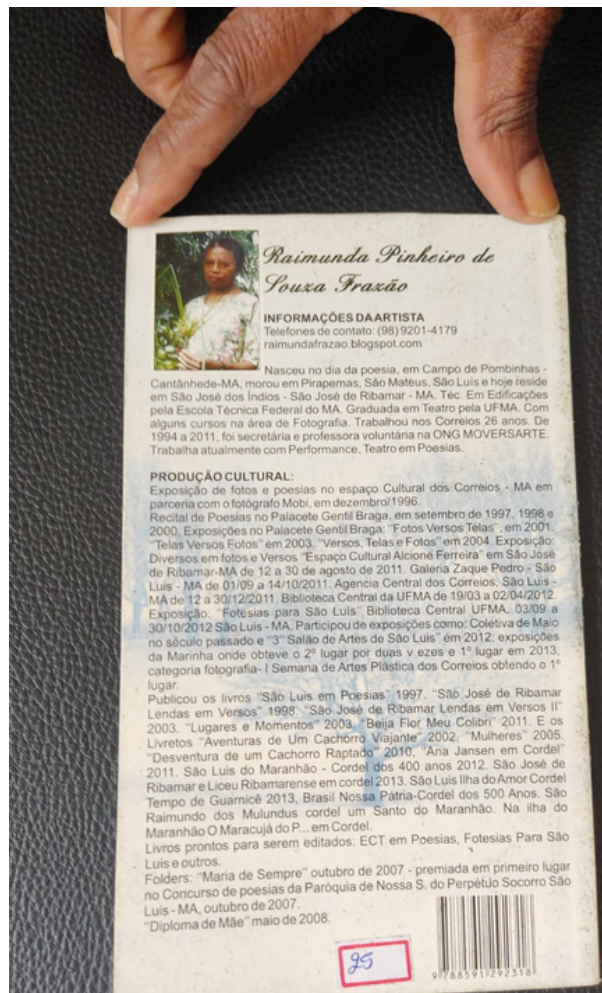 Raimunda Pinheiro de
Souza Frazão
INFORMAÇÕES DA ARTISTA
Telefones de contato: (98) 9201-4179
raimundafrazao.blogspot.com
Nasceu no dia da poesia, em Campo de Pombinhas -
Cantânhede-MA, morou em Pirapemas, São Mateus, São Luís e hoje reside
em São José dos Índios - São José de Ribamar - MA. Téc. Em Edificações
pela Escola Técnica Federal do MA. Graduada em Teatro pela UFMA. Com
alguns cursos na área de Fotografia. Trabalhou nos Correios 26 anos. De
1994 a 2011, foi secretária e professora voluntária na ONG MOVERSARTE.
Trabalha atualmente com Performance, Teatro em Poesias.
PRODUÇÃO CULTURAL:
Exposição de fotos e poesias no espaço Cultural dos Correios - MA em
parceria com o fotógrafo Mobi, em dezembro/1996.
Recital de Poesias no Palacete Gentil Braga, em setembro de 1997, 1998 e
2000. Exposições no Palacete Gentil Braga: "Fotos Versos Telas", em 2001,
"Telas Versos Fotos" em 2003, "Versos, Telas e Fotos" em 2004. Exposição:
Diversos em fotos e Versos "Espaço Cultural Alcione Ferreira" em São José
de Ribamar-MA de 12 a 30 de agosto de 2011. Galeria Zaque Pedro - São
Luis - MA de 01/09 a 14/10/2011. Agencia Central dos Correios, São Luis -
MA de 12 a 30/12/2011. Biblioteca Central da UFMA de 19/03 a 02/04/2012.
Exposição: "Fotesias para São Luís" Biblioteca Central UFMA, 03/09 a
30/10/2012 São Luis - MA. Participou de exposições como: Coletiva de Maio
no século passado e "3° Salão de Artes de São Luis" em 2012; exposições
da Marinha onde obteve o 2º lugar por duas v ezes e 1º lugar em 2013,
categoria fotografia- I Semana de Artes Plástica dos Correios obtendo o 1º
lugar.
Publicou os livros "São Luis em Poesias" 1997. "São José de Ribamar
Lendas em Versos" 1998. "São José de Ribamar Lendas em Versos II"
2003. "Lugares e Momentos" 2003, "Beija Flor Meu Colibri" 2011. E os
Livretos "Aventuras de Um Cachorro Viajante" 2002, "Mulheres" 2005.
"Desventura de um Cachorro Raptado" 2010, "Ana Jansen em Cordel"
2011. São Luis do Maranhão - Cordel dos 400 anos 2012. São José de
Ribamar e Liceu Ribamarense em cordel 2013. São Luis Ilha do Amor Cordel
Tempo de Guarnicê 2013, Brasil Nossa Pátria-Cordel dos 500 Anos. São
Raimundo dos Mulundus cordel um Santo do Maranhão. Na ilha do
Maranhão O Maracujá do P... em Cordel.
Livros prontos para serem editados: ECT em Poesias, Fotesias Para São
Luis e outros.
Folders: "Maria de Sempre" outubro de 2007 - premiada em primeiro lugar
no Concurso de poesias da Paróquia de Nossa S. do Perpétuo Socorro São
Luis - MA, outubro de 2007.
"Diploma de Mãe" maio de 2008.
25
9 788591 292318